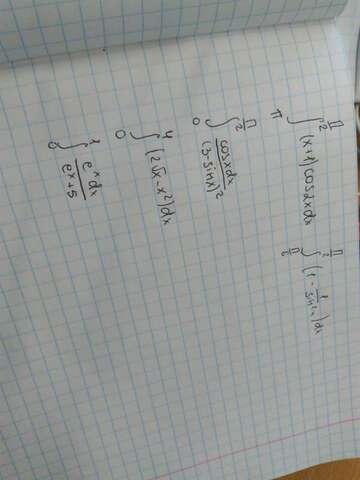 ∫_π^{π/2} (x+1) cos2x dx    ∫_{π/6}^{π/2} (1 - 1/sin²x) dx
∫_0^{π/2} cosx dx/(3-sinx)²
∫_0^4 (2√x - x²) dx
∫_0^1 e^x dx/(e^x+5)